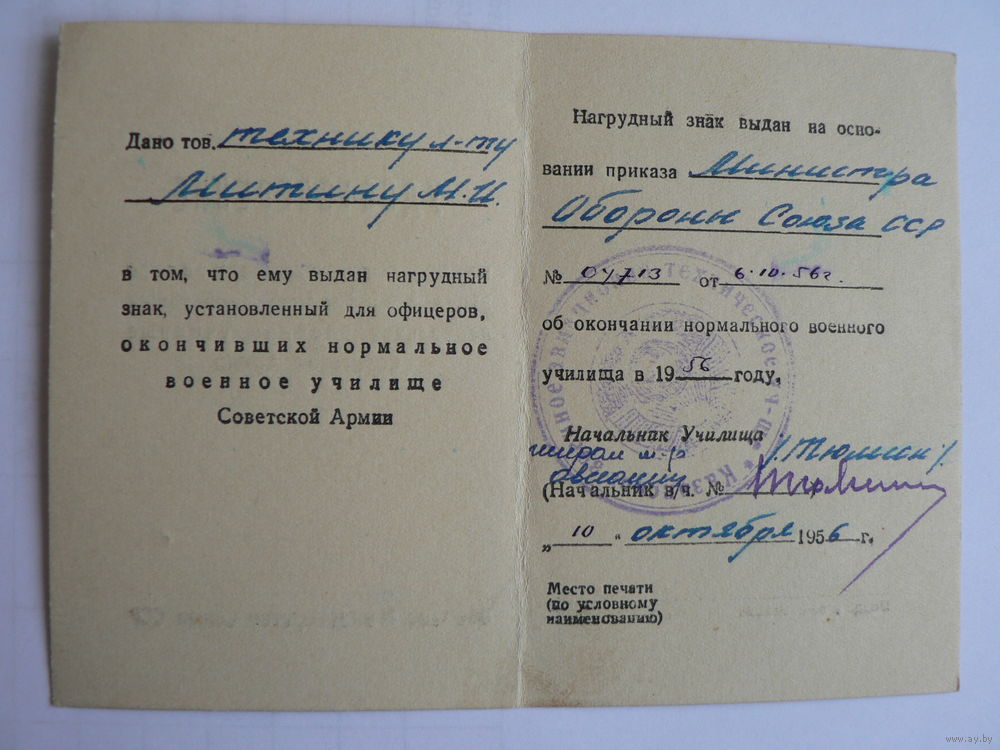 Дано тов. технику л-ту
Митину М.И.
в том, что ему выдан нагрудный
знак, установленный для офицеров,
окончивших нормальное
военное училище
Советской Армии
Нагрудный знак выдан на осно-
вании приказа Министра
Обороны Союза ССР
№ 04713 от 6.10.56г.
об окончании нормального военного
училища в 1956 году.
Начальник Училища
авиации (Тюмин)
(Начальник в/ч. №
„10" октября 1956 г.
Место печати
(по условному
наименованию)
www.ay.by